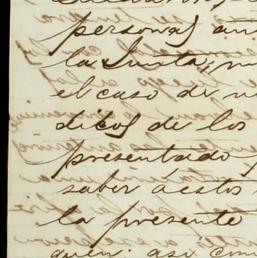 personas an
la Junta, m
el caso de n
dicos de los
presentado y
saber á éstos
la presente
quen así com